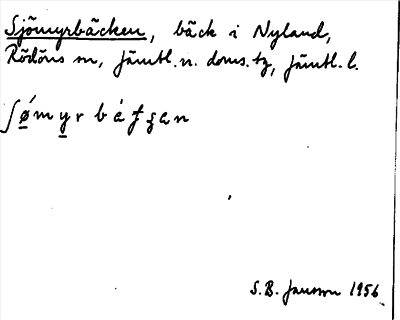 Sjömyrbäcken, bäck i Nyland,
Rödöns sn, Jämtl. n. doms. tg, Jämtl. l.
S. B. Jansson 1956